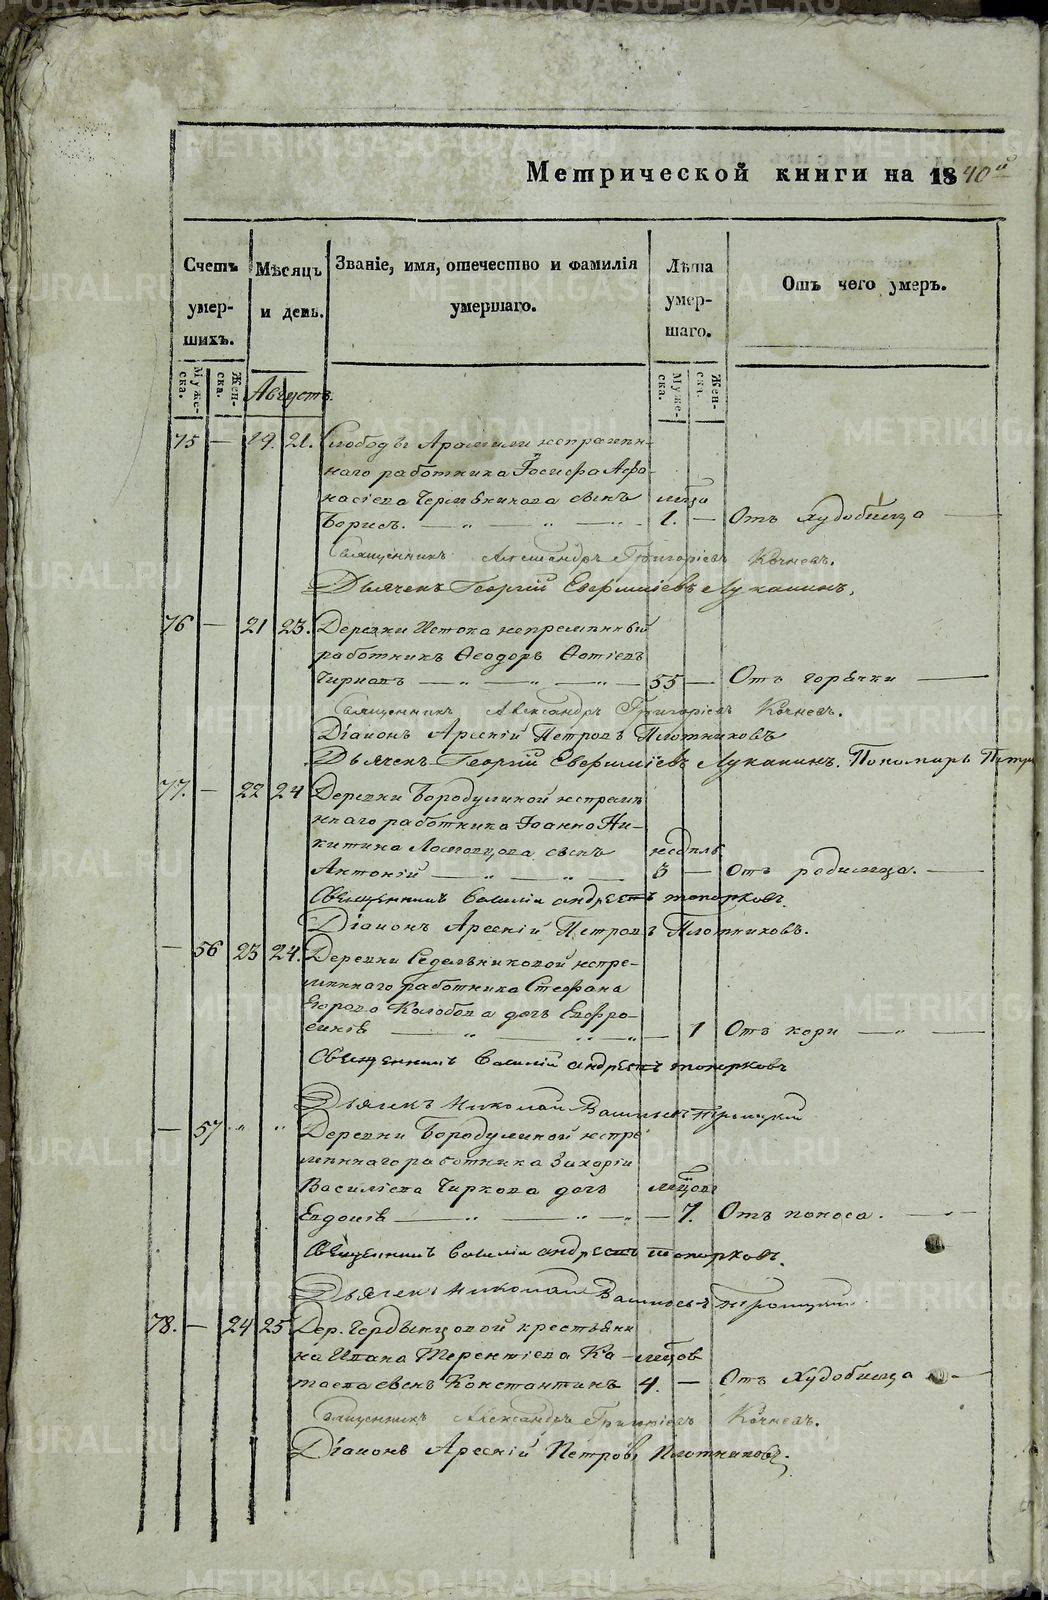 Метрической книги на 1840й
Счетъ умер-шихъ.
Мѣсяцъ и день.
Званіе, имя, отечество и фамилія умершаго.
Лѣта умер-шаго.
Отъ чего умеръ.
Муже-ска.
Жен-ска.
Муже-ска.
Жен-ска.
Августъ.
75 — 19. 21. Слободы Арамили непремен-
наго работника Іосифа Афо-
насіева сынъ мѣца
Борисъ. — 1. — Отъ худобища
Священникъ Александръ Григоріевъ Кочневъ.
Дьячекъ Георгій Евфиміевъ Луканинъ.
76 — 21 23. Деревни Истока непременный
работникъ Ѳеодоръ Ѳотіевъ
— 55 — Отъ горячки
Священникъ Александръ Григоріевъ Кочневъ.
Діаконъ Арсеній Петровъ Плотниковъ
Дьячекъ Георгій Евфиміевъ Луканинъ. Пономарь Петръ
77. — 22 24 Деревни Бородулиной непремѣн
наго работника Іоанна Ни-
китина сынъ недѣль
Антоній — 3 — Отъ родимца.
Священникъ Василій Андреевъ Топорковъ.
Діаконъ Арсеній Петровъ Плотниковъ.
— 56 23 24. Деревни Седельниковой непре-
меннаго работника Стефана
Егорова Колобова дочь Евфро-
синія — 1 Отъ кори
Священникъ Василій Андреевъ Топорковъ
Дьячекъ Николай Васильевъ Троицкій
— 57 " " Деревни Бородулиной непре
меннаго работника Захарія
Василіева Чиркова дочь мѣцовъ
Евдокія — 7. Отъ поноса.
Священникъ Василій Андреевъ Топорковъ.
Дьячекъ Николай Васильевъ Троицкій
78. — 24 25 Дер. крестьяни
на Ивана Терентіева Ка- мѣцов
таева сынъ Константинъ 4. — Отъ худобища
Священникъ Александръ Григоріевъ Кочневъ.
Діаконъ Арсеній Петровъ Плотниковъ.
METRIKI.GASO-URAL.RU